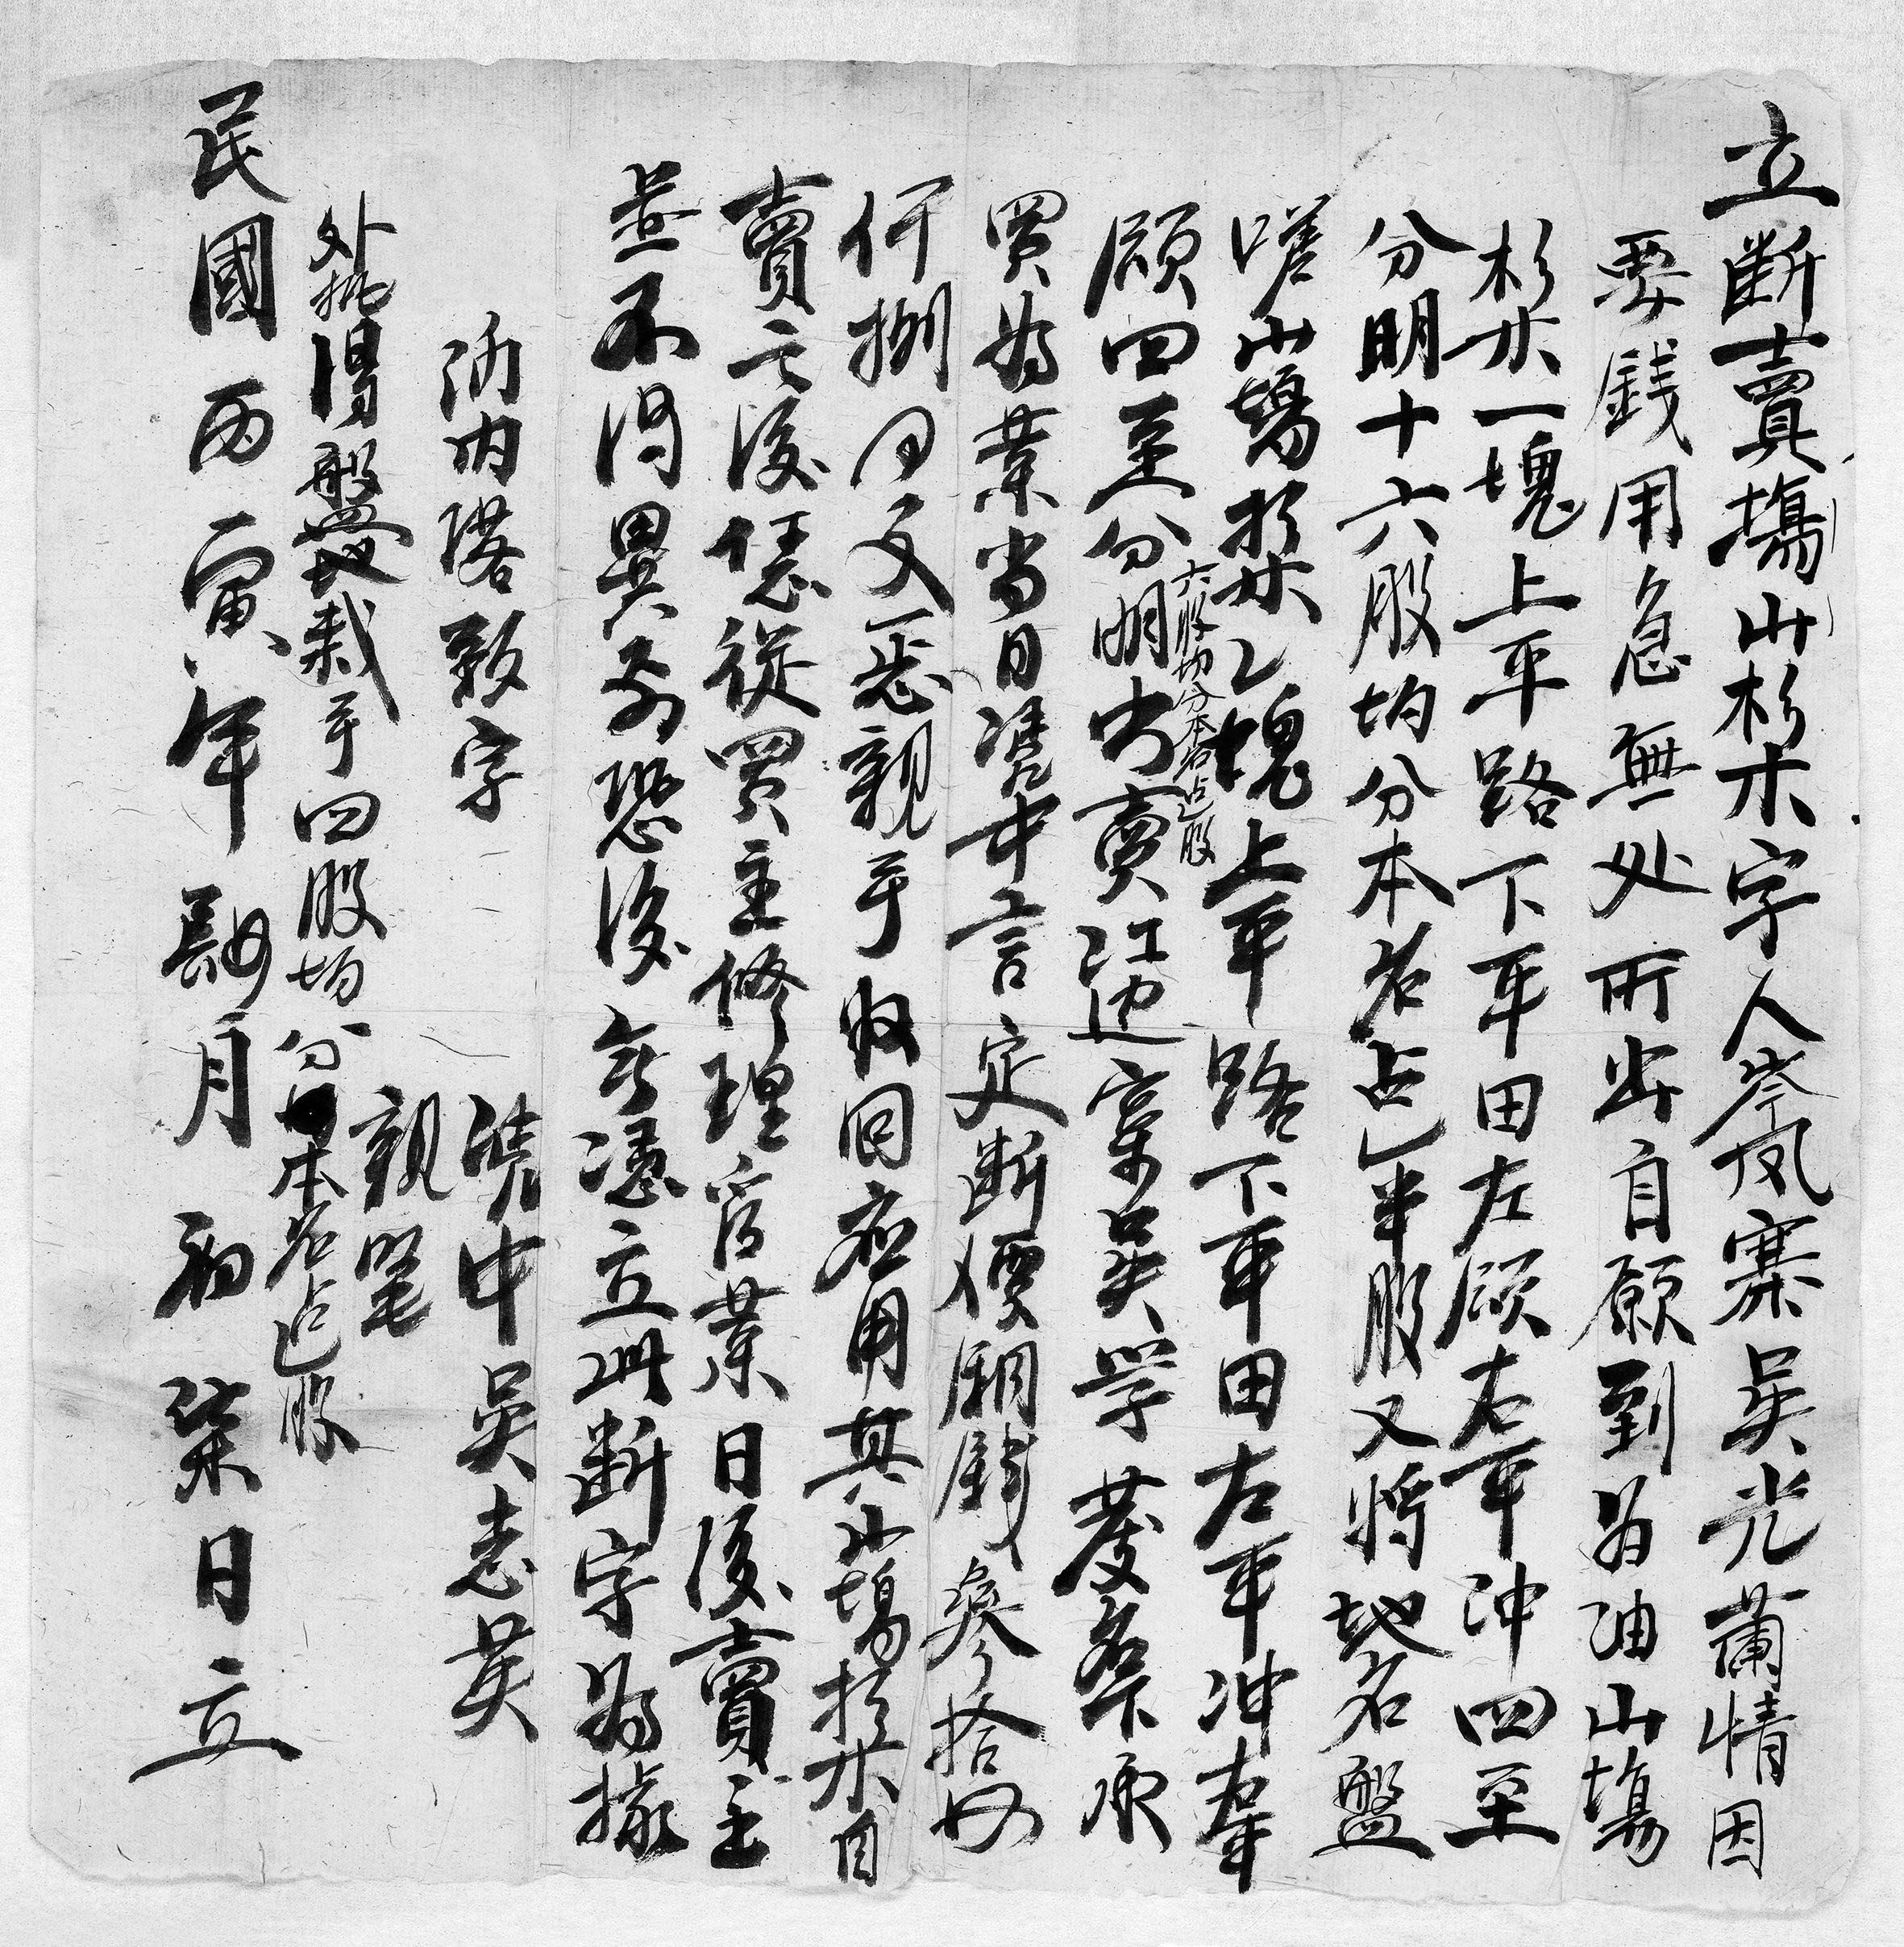 立断賣塲山杉木字人岑凤寨吴光蒲情因
要銭用急無处所出自愿到为油山塲
杉木一塊上平路下平田左顾右平冲四至
分明十六股均分本名占乚半股又将地名盤
嗟山塲杉木乙塊上平路下平田左平冲右平
六股均分本名占乙股
顾四至分明出賣江边寨吴学葰名下承
買為業当日凭中言定断價銅錢叁拾四
仟捌百文正親手收回应用其山塲杉木自
賣之後恁従買主修理官業日後賣主
並不得異言恐後無凴立此断字為據
添内塔数字
凴中吴志英
親筆
外批得盤地栽手四股均分本名占乙股
民國丙寅年 月初柒日立